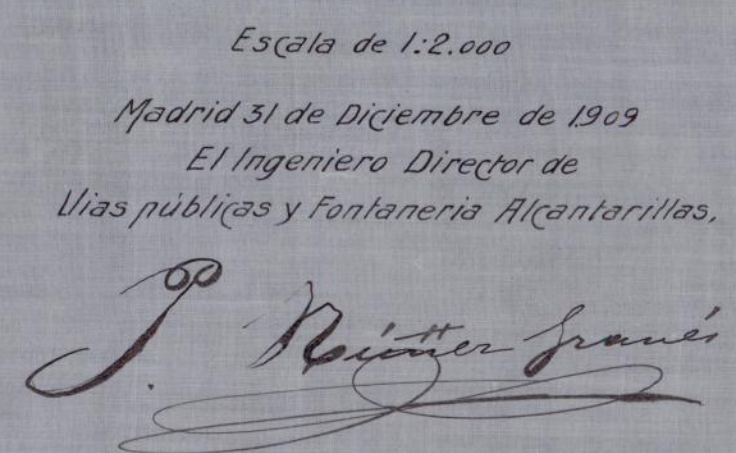 Escala de 1:2.000
Madrid 31 de Diciembre de 1909
El Ingeniero Director de
Vias públicas y Fontaneria Alcantarillas,
P. Núñez Granés